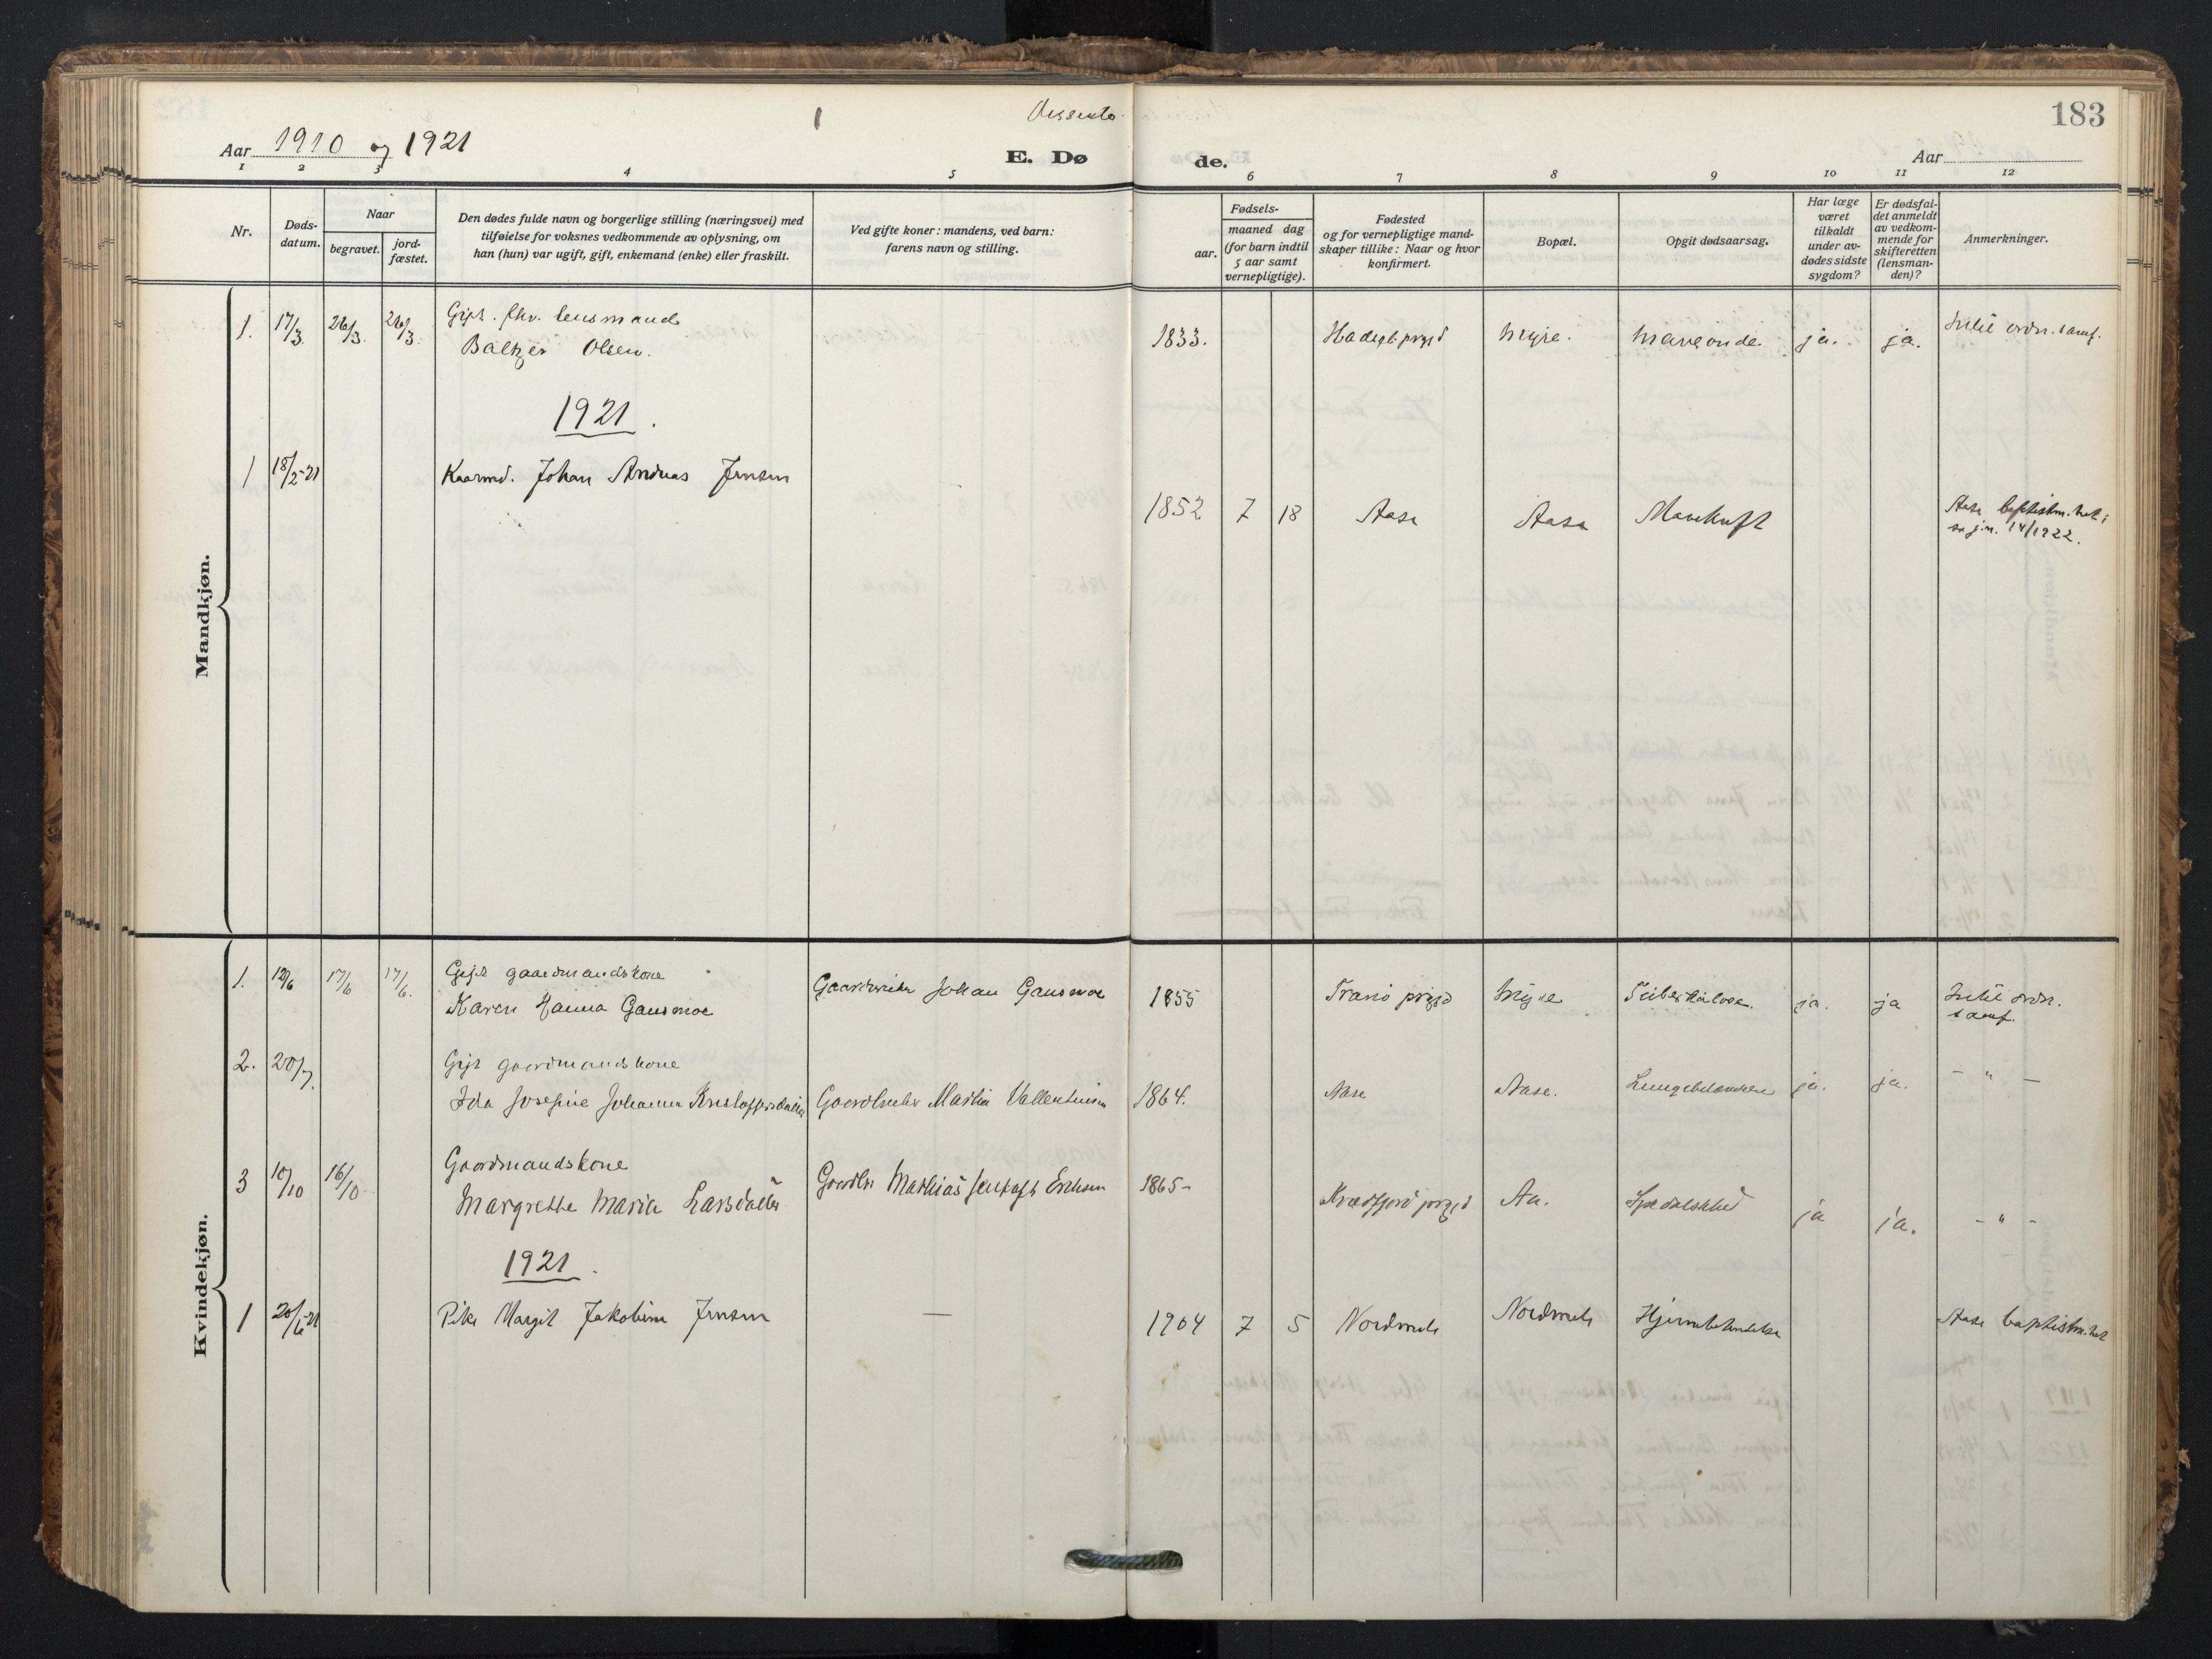 183
Dissenter
Aar 1910 og 1921
E. Døde.
Aar
1 2 3 4 5 6 7 8 9 10 11 12
Nr.
Døds-
datum.
Naar
begravet.
jord-
fæstet.
Den dødes fulde navn og borgerlige stilling (næringsvei) med
tilføielse for voksnes vedkommende av oplysning, om
han (hun) var ugift, gift, enkemand (enke) eller fraskilt.
Ved gifte koner: mandens, ved barn:
farens navn og stilling.
Fødsels-
aar.
maaned dag
(for barn indtil
5 aar samt
vernepligtige).
Fødested
og for vernepligtige mand-
skaper tillike: Naar og hvor
konfirmert.
Bopæl.
Opgit dødsaarsag.
Har læge
været
tilkaldt
under av-
dødes sidste
sygdom?
Er dødsfal-
det anmeldt
av vedkom-
mende for
skifteretten
(lensman-
den)?
Anmerkninger.
Mandkjøn.
1. 17/3. 26/3. 26/3. Gift. fhv. lensmand
Baltzer Olsen. 1833. Hadsel prgjd Myre. Maveonde ja. ja.
1921.
1 18/2-21 Kaarmd. Johan Andreas Jensen
1852 7 18 Aase Aase Mavekræft Aase baptistm.het;
14/1922.
Kvindekjøn.
1. 12/6 17/6 17/6. Gift gaardmandskone
Karen Hanna Gausmoe Johan Gausmoe 1855 Tranø prgjd Myre Tuberkulose. ja. ja
2. 20/7. Gift gaardmandskone
Ida Josefine Johanna Kristoffersdatter Martin Vallentinsen 1864. Aase Aase. Lungebetændelse ja. ja. - " -
3 10/10 16/10 Gaardmandskone
Margrethe Maria Larsdatter Mathias Gustaft Eriksen 1865- Kvædfjord prgjd Aa. Spedalskhed ja ja. - " -
1921.
1 20/6-21 Pike Margit Jakobine Jensen — 1904 7 5 Nordmela Nordmela Hjernebetændelse Aase baptistm.het